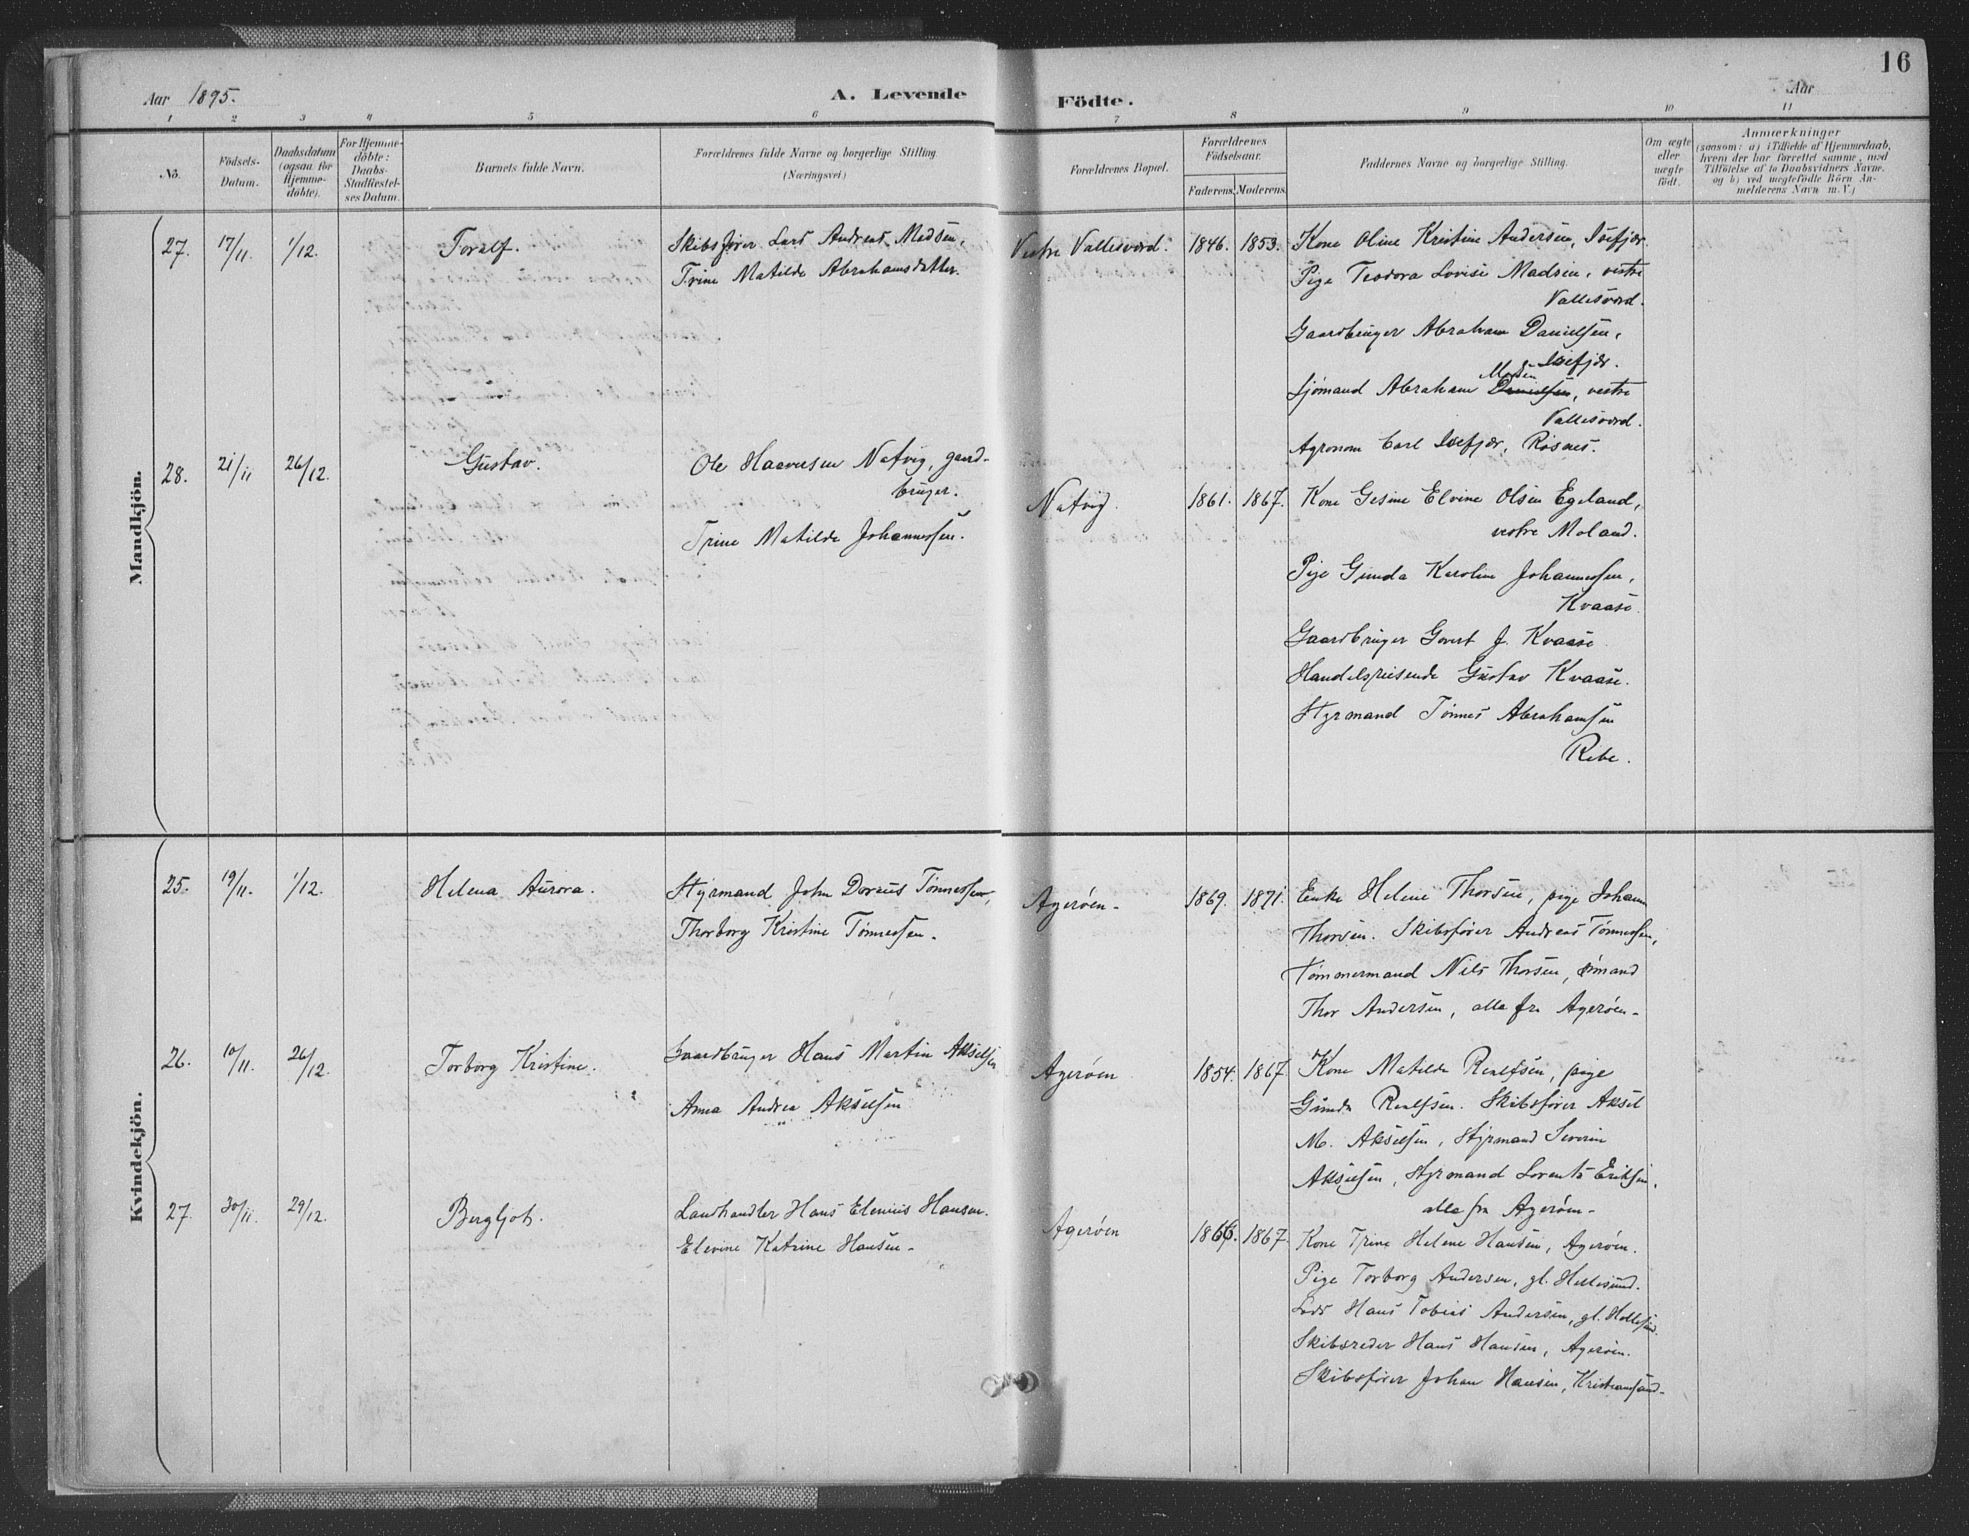 16
Aar 1895.
A. Levende
Födte.
Aar
1 2 3 4 5 6 7 8 9 10 11
No.
Födsels-
Datum.
Daabsdatum
(ogsaa for
Hjemme-
döbte).
For Hjemme-
döbte:
Daabs-
Stadfæstel-
ses Datum.
Barnets fulde Navn.
Forældrenes fulde Navne og borgerlige Stilling
(Næringsvei)
Forældrenes Bopæl.
Forældrenes
Födselsaar.
Faderens. Moderens.
Faddernes Navne og borgerlige Stilling.
Om ægte
eller
uægte
födt.
Anmærkninger
(saasom: a) i Tilfælde af Hjemmedaab,
hvem der har forrettet samme, med
Tilföielse af to Daabsvidners Navne.
og b) ved uægtefödte Börn An-
melderens Navn m. V.)
Mandkjön.
27. 17/11. 1/12. Toralf.
Skibsfører Lars Andreas Madsen,
Trine Matilde Abrahamsdatter.
Vestre Vallesværd. 1846. 1853.
Kone Oline Kristine Andersen, Isefjær.
Pige Teodora Lovise Madsen, vestre
Vallesværd.
Gaardbruger Abraham Danielsen,
Isefjær.
Madsen
Sjømand Abraham Danielsen, vestre
Vallesværd.
Agronom Carl Isefjær, Rosnes.
28. 21/11 26/12. Gustav.
Ole Haaversen Natvig, gaard-
bruger.
Trine Matilde Johannessen.
Natvig. 1861. 1867.
Kone Gesine Elvine Olsen Egeland,
vestre Moland.
Pige Gunda Karoline Johannessen,
Kvaase.
Gaardbruger Govert J. Kvaase.
Handelsreisende Gustav Kvaase.
Styrmand Tønnes Abrahamsen
Ribe.
Kvindekjön.
25. 19/11. 1/12. Helena Aurora.
Styrmand John Doreus Tønnessen,
Thorborg Kristine Tønnessen.
Agerøen. 1869. 1871.
Enke Helene Thorsen, pige Johanne
Thorsen. Skibsfører Andreas Tønnessen,
Tømmermand Nils Thorsen, sømand
Thor Andersen, alle fra Agerøen.
26. 10/11. 26/12. Torborg Kristine.
Gaardbruger Hans Martin Akselsen
Anna Andrea Akselsen
Agerøen 1854. 1867
Kone Matilde Realfsen, pige
Gunda Realfsen. Skibsfører Aksel
M. Akselsen, Styrmand Severin
Akselsen, Styrmand Lorents Eriksen,
alle fra Agerøen.
27. 30/11. 29/12. Bergljot.
Landhandler Hans Elenius Hansen.
Elevine Katrine Hansen.
Agerøen 1866. 1867
Kone Trine Helene Hansen, Agerøen.
Pige Torborg Andersen, gl. Hellesund.
Lods Hans Tobias Andersen, gl. Hellesund.
Skibsreder Hans Hansen, Agerøen.
Skibsfører Johan Hansen, Kristiansand.